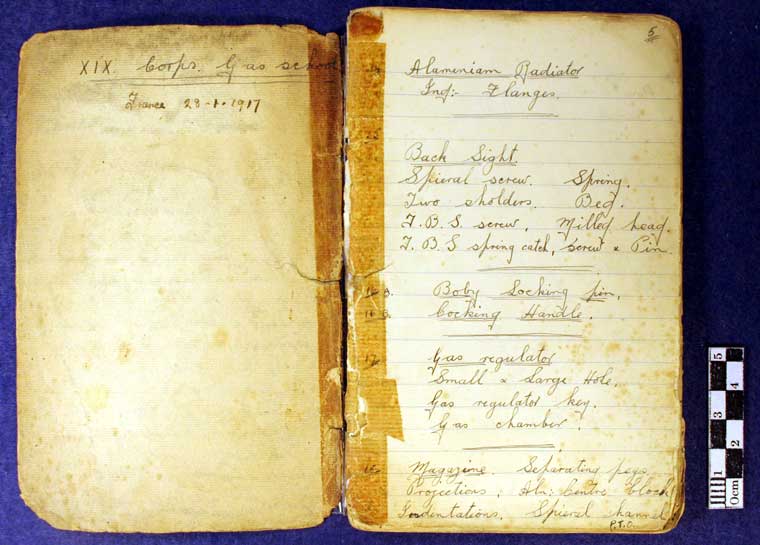 XIX. Corps. Gas school
France 28-1-1917
5
Alameniam Radiator
Flanges.
Back Sight.
Spieral screw. Spring.
Two sholders. Bed.
T. B. S. screw, Milled head.
T. B. S spring catch, screw & Pin.
Boby Locking pin,
Cocking Handle.
17.
Gas regulator
Small & Large Hole.
Gas regulator key.
Gas chamber.
16
Magazine. Separating pegs.
Projections, Alu: Centre block
Indentations. Spieral channel
P.T.O.
0cm 1 2 3 4 5